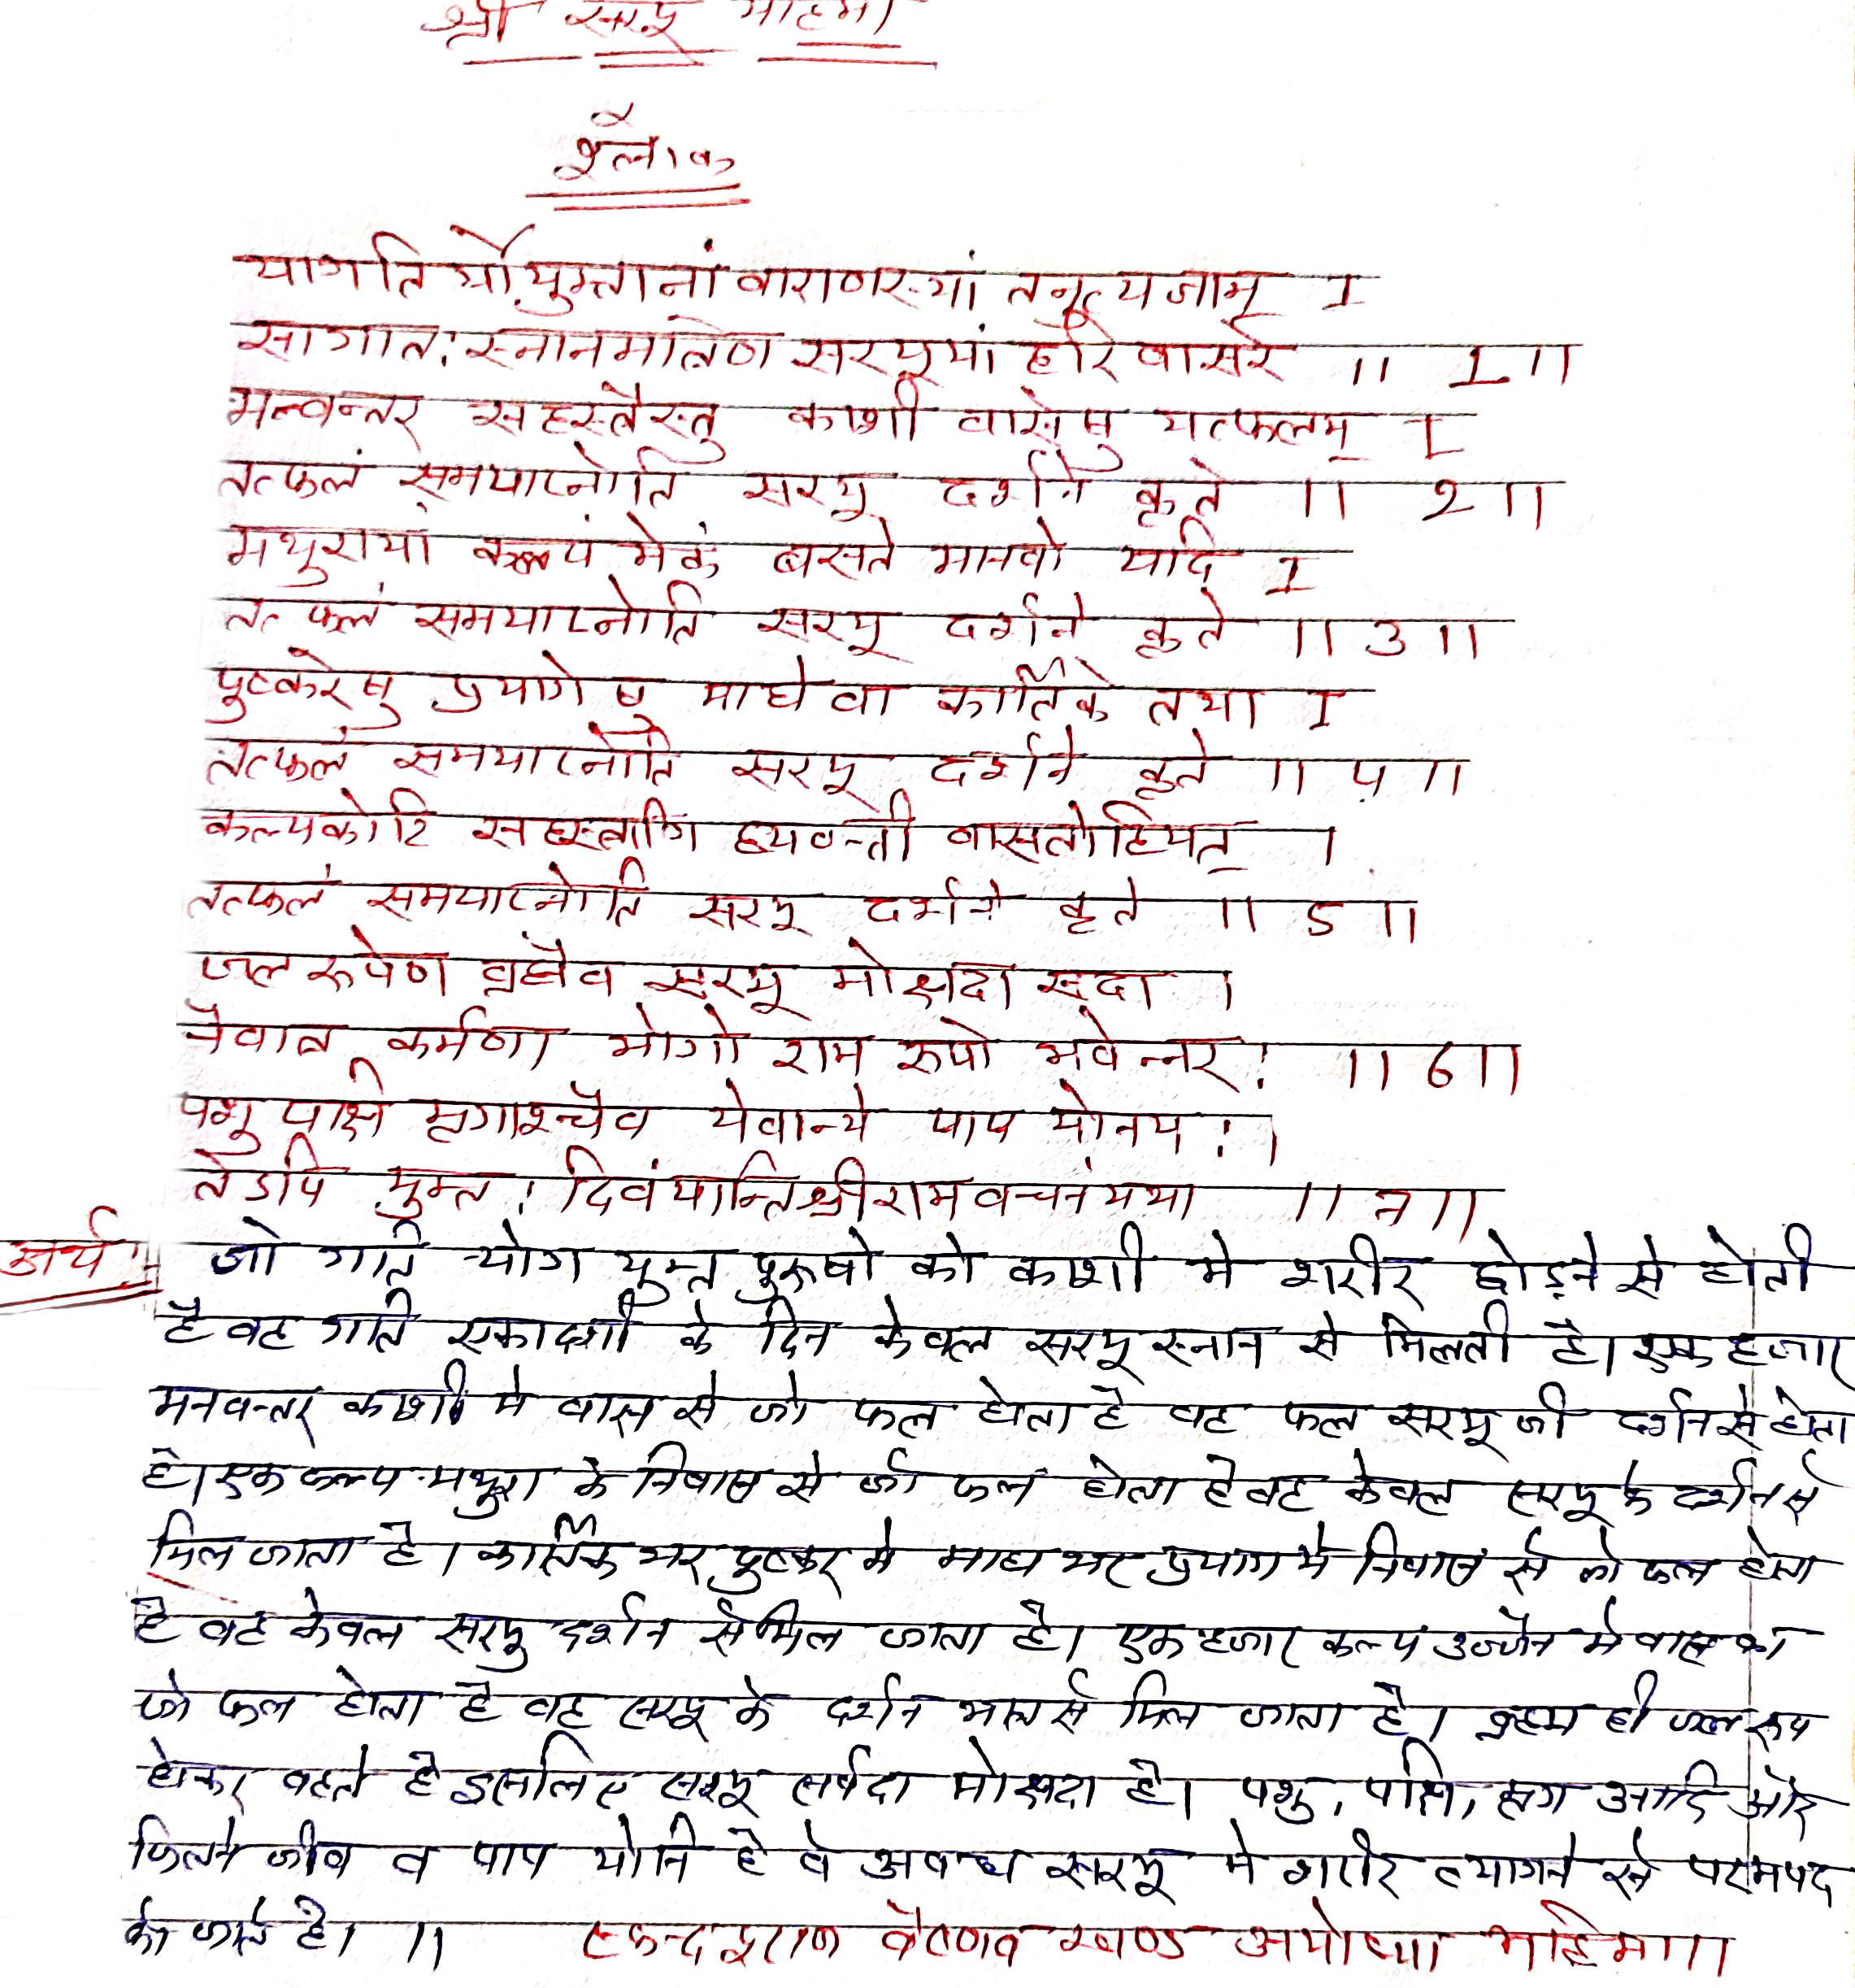 श्री सरयू महिमा
श्लोक
यागति र्योयुक्तानां वाराणस्यां तनुत्यजाम् I
सागति: स्नानमात्रेण सरयूयां हरि वासरे ॥ 1 ॥
मन्वन्तर सहस्त्रैस्तु काशी वासेषु यत्फलम् I
तत्फलं समयाप्नोति सरयू दर्शने कृते ॥ २ ॥
मथुरायां कल्पं मेकं बसते मानवो यदि I
तत फलं समयाप्नोति सरयू दर्शने कृते ॥ 3 ॥
पुष्करेषु प्रयागेषु माघे वा कार्तिके तथा I
तत्फलं समयाप्नोति सरयू दर्शने कृते ॥ ५ ॥
कल्पकोटि सहस्त्राणि ह्यवन्ती वासतोहियत् ।
तत्फलं समयाप्नोति सरयू दर्शने कृते ॥ 5 ॥
जल रूपेण ब्रह्मैव सरयू मोक्षदा सदा ।
नैवात्र कर्मणा भोगो राम रूपो भवेन्नर: ॥ 6 ॥
पशु पक्षि मृगाश्चैव येवान्ये पाप योनय: ।
तेऽपि युक्त: दिवंयान्ति श्रीराम वचनंयथा ॥ ७ ॥
अर्थ॥ जो गति योग युक्त पुरूषो को काशी मे शरीर छोड़ने से होती
है वह गति एकादशी के दिन केवल सरयू स्नान से मिलती है। एक हजार
मनवन्तर काशी मे वास से जो फल होता है वह फल सरयू जी दर्शन से होता
है। एक कल्प मथुरा के निवास से जो फल होता है वह केवल सरयू के दर्शन से
मिल जाता है। कार्तिक भर पुष्कर मे माघ भर प्रयाग मे निवास से जो फल होता
है वह केवल सरयु दर्शन से मिल जाता है। एक हजार कल्प उज्जैन मे वास का
जो फल होता है वह सरयू के दर्शन मात्र से मिल जाता है। ब्रह्म ही जल रूप
होकर बहते है इसलिए सरयू सर्वदा मोक्षदा है। पशु, पक्षि, मृग आदि और
जितने जीव व पाप योनि है वे अवध सरयू मे शरीर त्यागने से परमपद
को जाते है। ॥ स्कन्द पुराण वैष्णव खण्ड अयोध्या महिमा॥